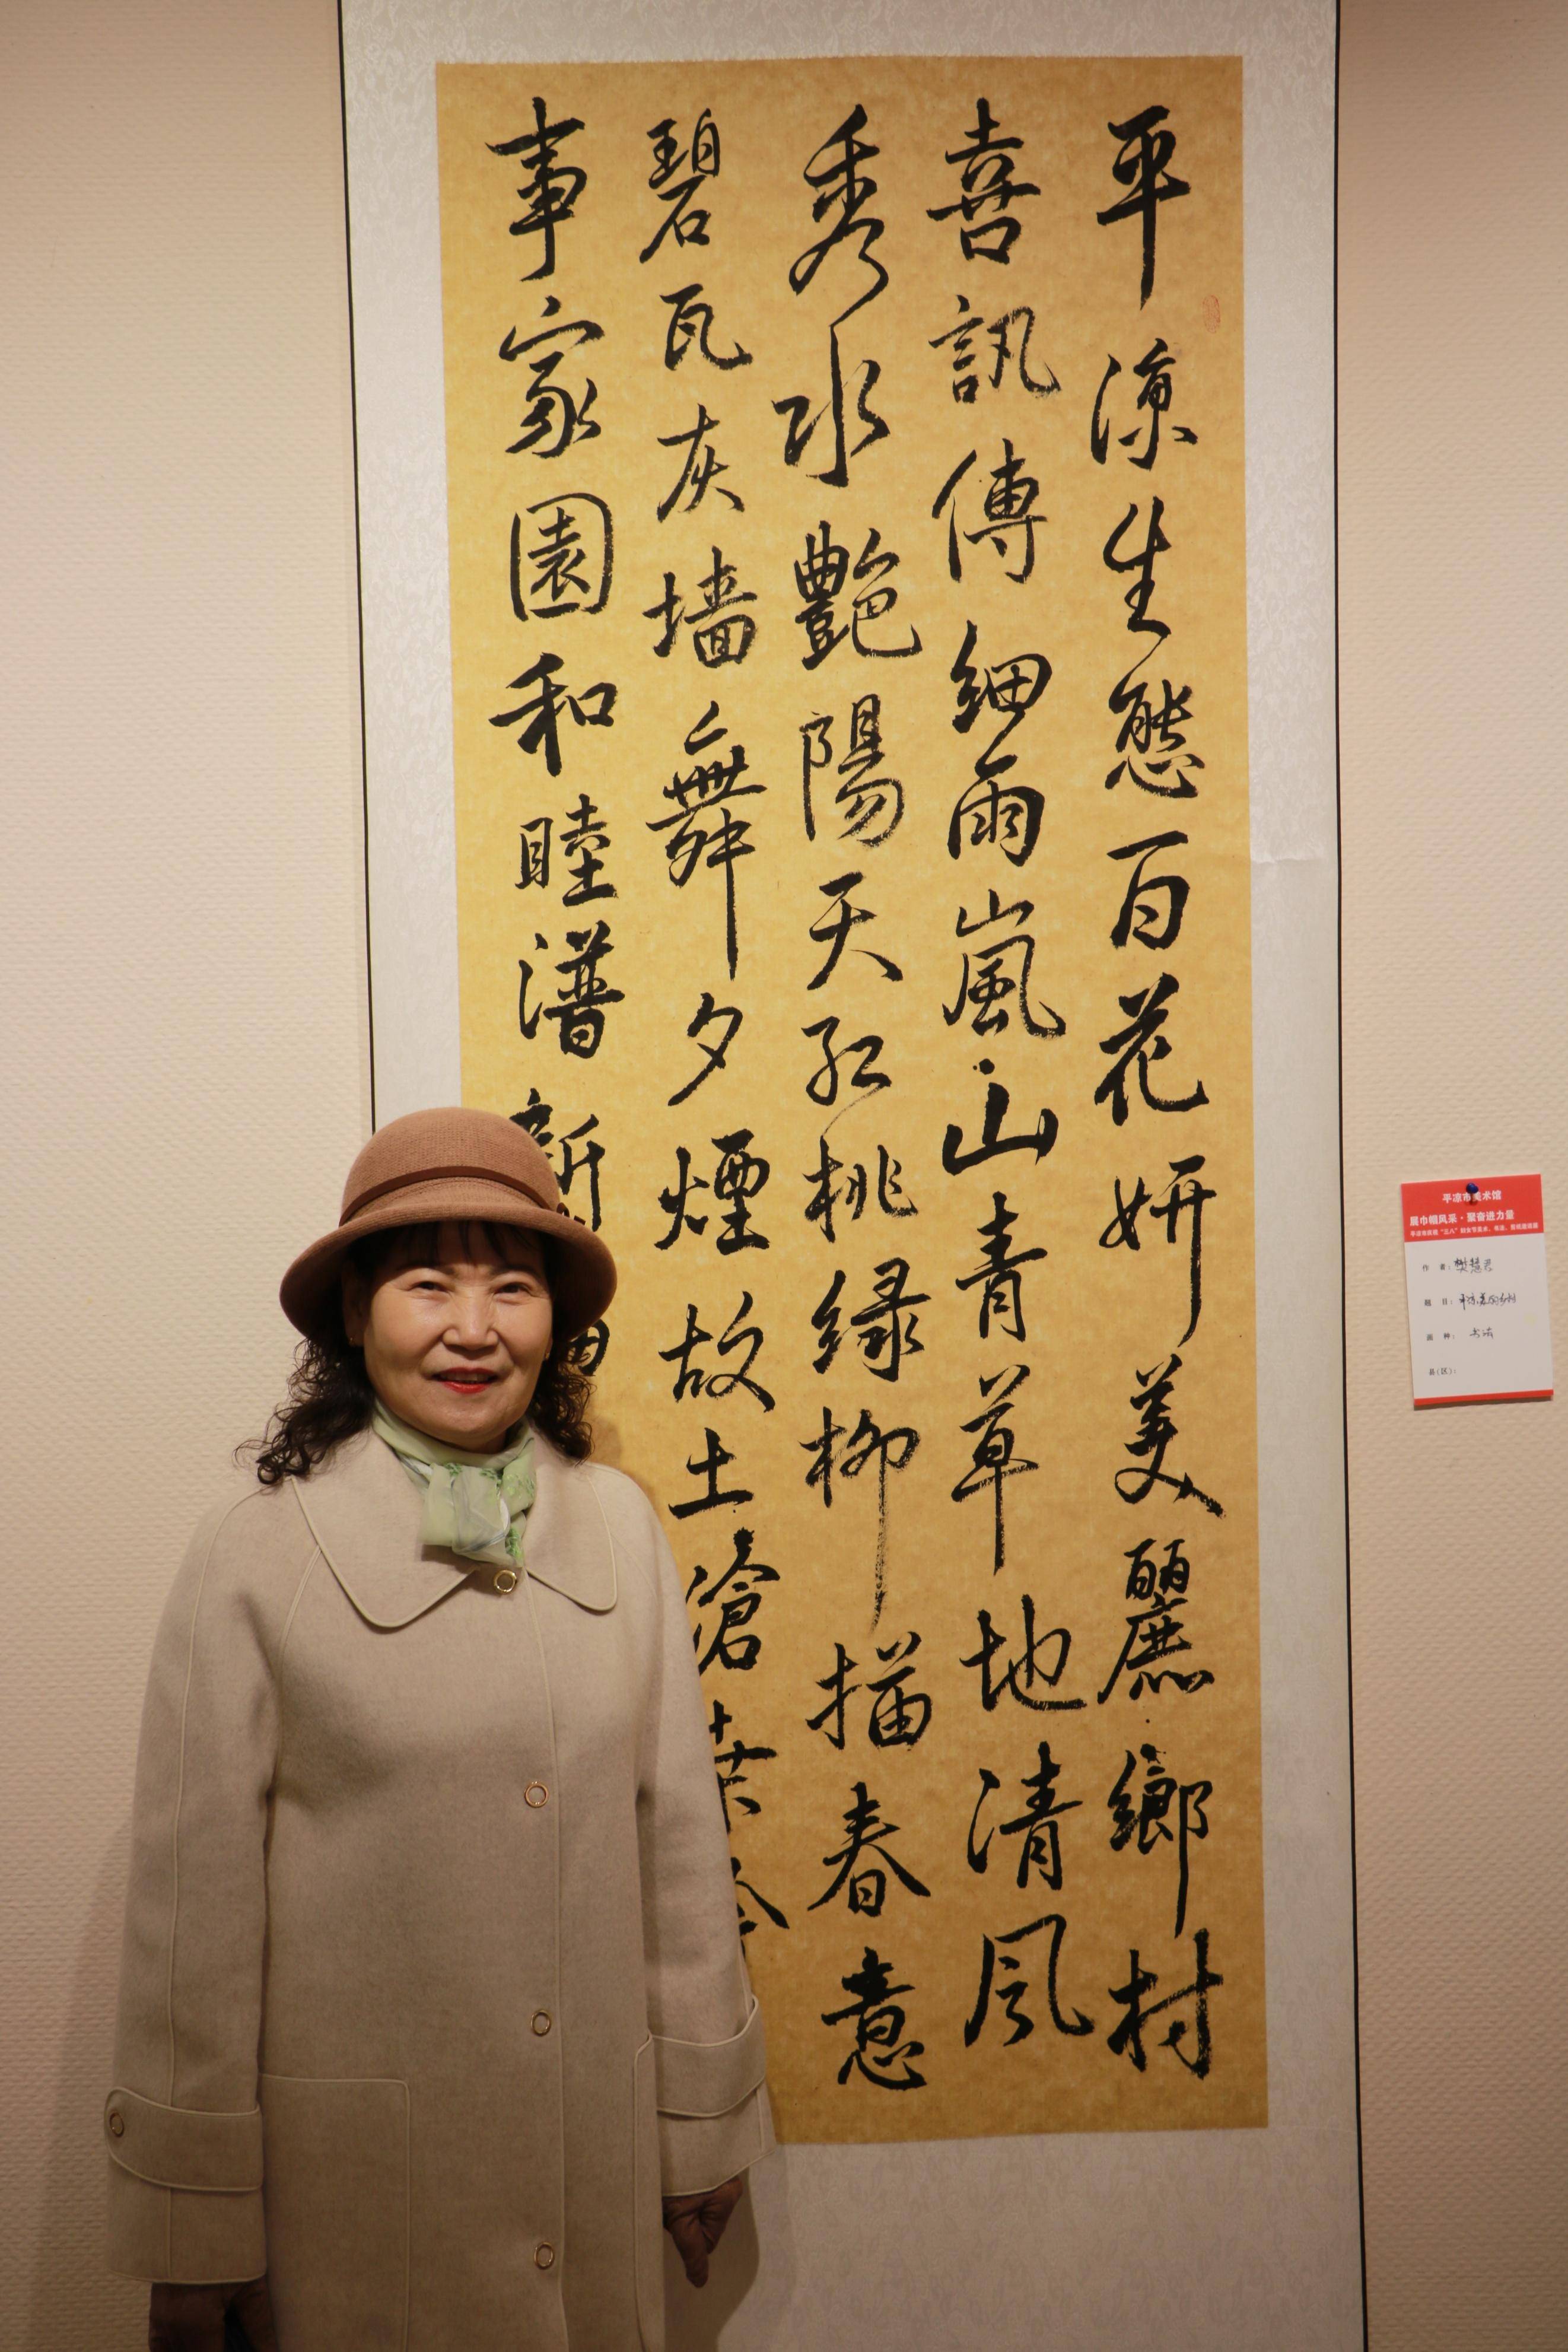 平涼生態百花妍美麗鄉村
喜訊傳細雨嵐山青草地清風
秀水艷陽天紅桃緑柳描春意
碧瓦灰墙舞夕煙故土滄桑
事家園和睦譜新
平凉市美术馆
展巾帼风采·聚奋进力量
平凉市庆祝“三八”妇女节美术、书法、剪纸展
作 者：樊慧君
题 目：平凉美丽乡村
画 种：书法
县(区)：